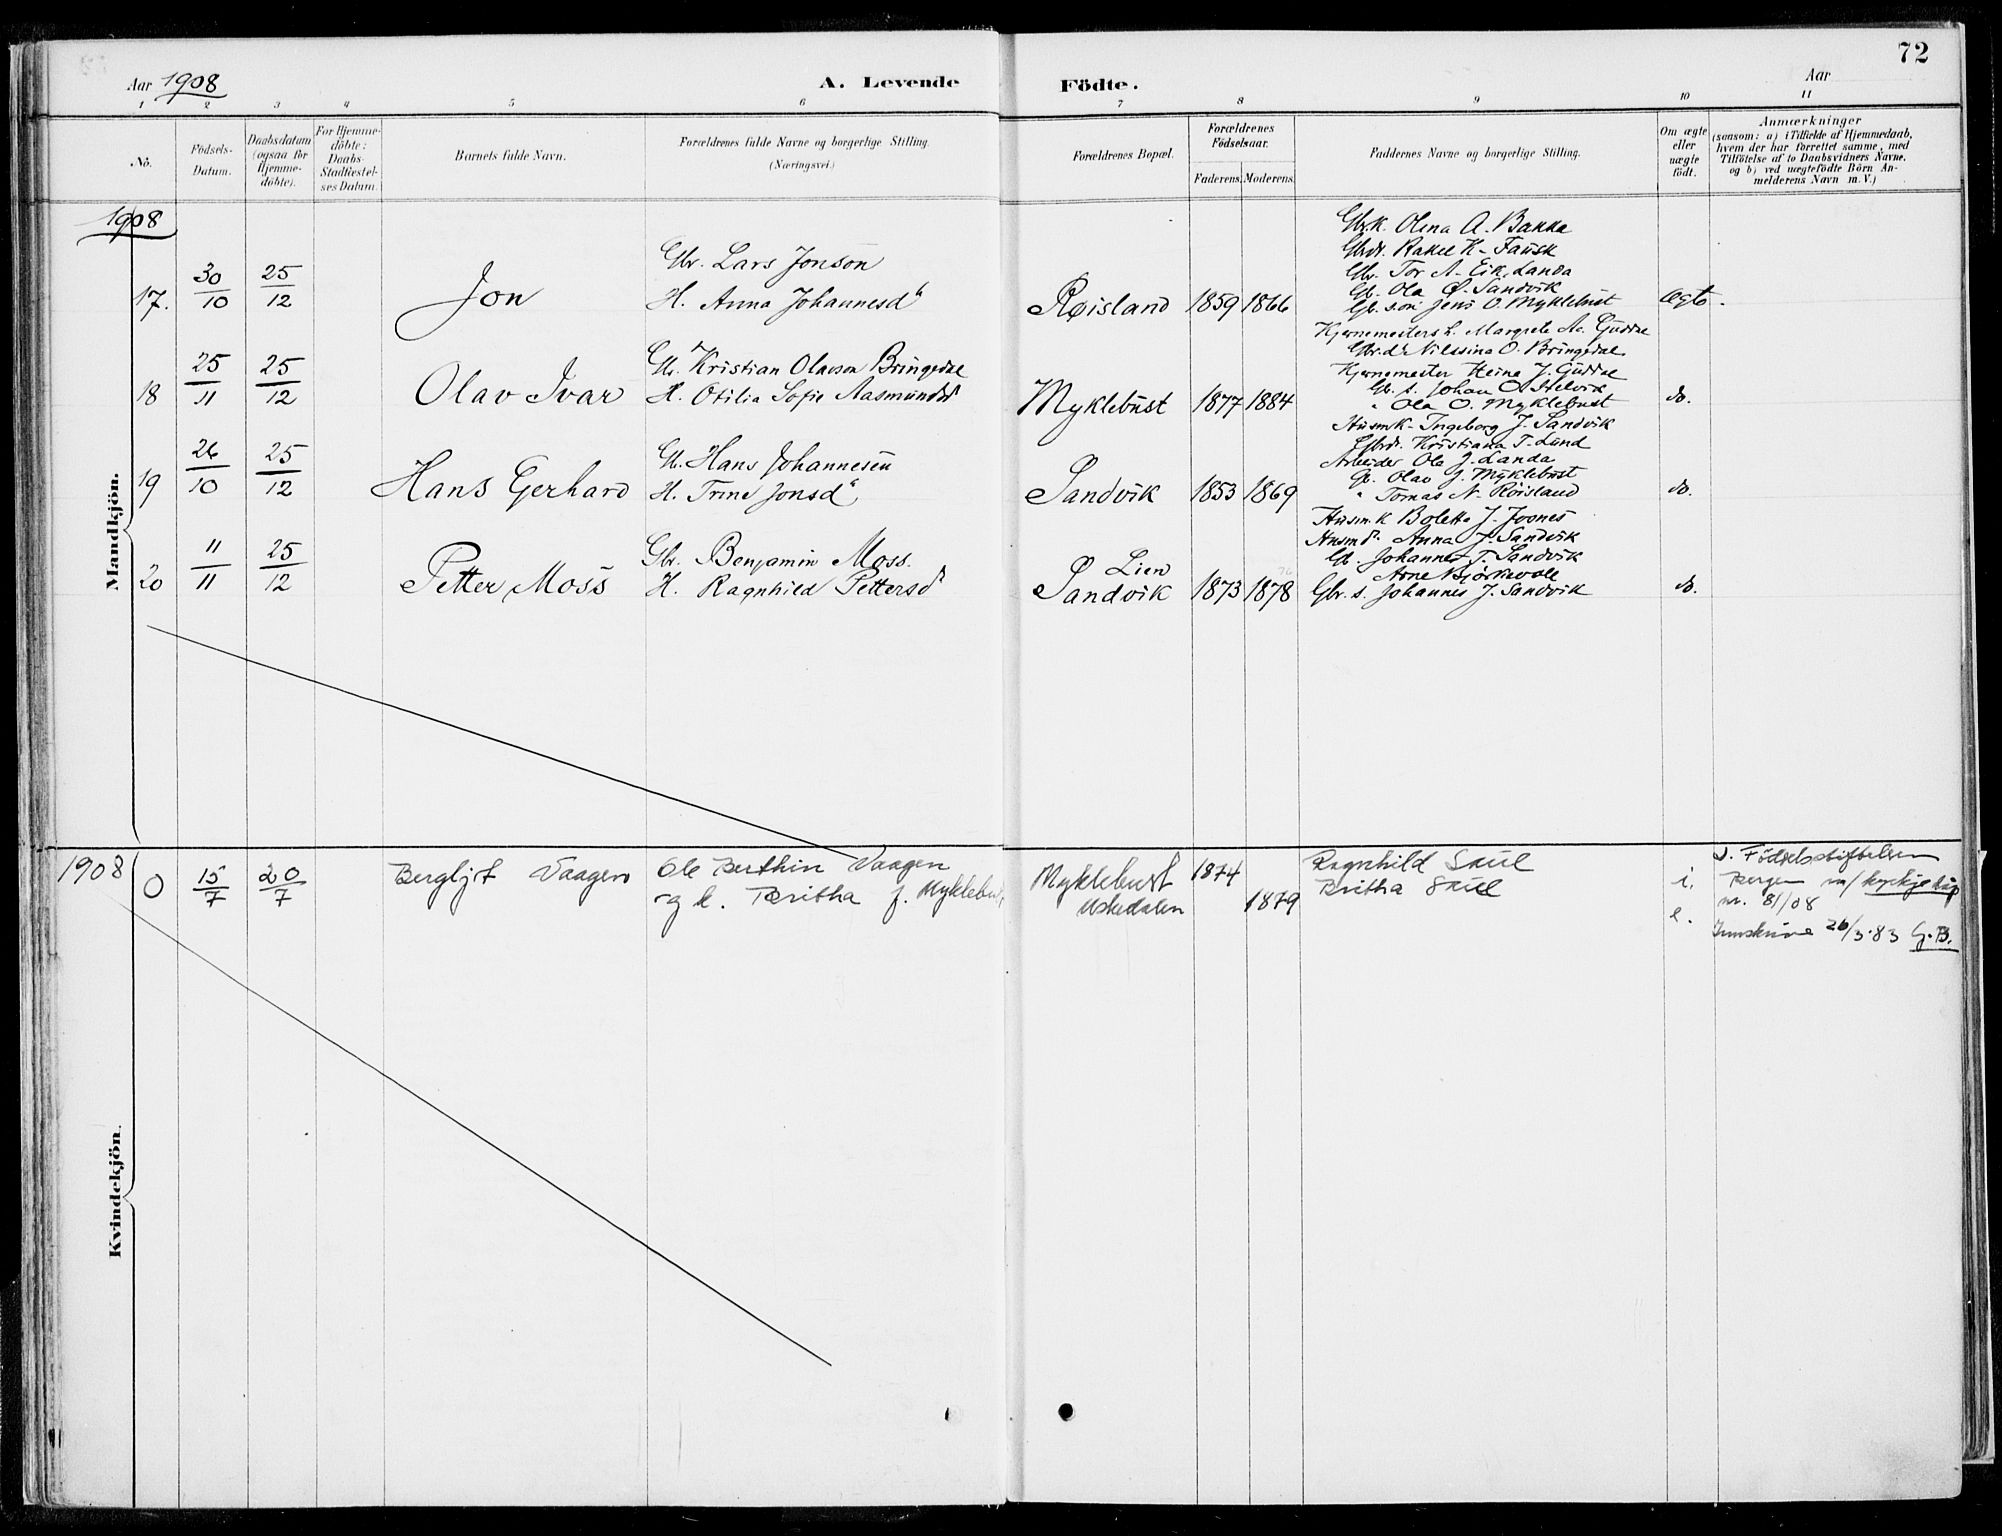 72
Aar 1908
A. Levende Födte.
Aar
1 2 3 4 5 6 7 8 9 10 11
No.
Födsels-Datum.
Daabsdatum (ogsaa for Hjemme-döbte).
For Hjemme-döbte: Daabs-Stadfæstel-ses Datum.
Barnets fulde Navn.
Forældrenes fulde Navne og borgerlige Stilling.
(Næringsvei.)
Forældrenes Bopæl.
Forældrenes Födselsaar.
Faderens. Moderens.
Faddernes Navne og borgerlige Stilling.
Om ægte eller uægte födt.
Anmærkninger
(saasom: a) i Tilfælde af Hjemmedaab,
hvem der har forrettet samme, med
Tilföielse af to Daabsvidners Navne,
og b) ved uægtefödte Börn An-
melderens Navn m. V.)
Mandkjön.
1908
17. 30/10 25/12 Jon
Gbr. Lars Jonson
H. Anna Johannesd
Røisland 1859 1866
Gbr.k. Olena A. Bakke
Gbrdt. Rakel K. Fausk
Gbr. Tor A. Eik, Landa
Gb. Ola Ø. Sandvik
Gb. son Jens O. Myklebust
ægte.
18 25/11 25/12 Olav Ivar
Gbr. Kristian Olavson Bringedal
H. Otilia Sofie Aasmundsd
Myklebust 1877 1884
Kjernemesters h. Margrete Guddal
Gbr.d. Nilssina O. Bringedal
Kjernemester Heine J. Guddal
Gb. s. Johan O. Helvik
" Ola O. Myklebust
do.
19 26/10 25/12 Hans Gerhard
Gb. Hans Johannesen
H. Trine Jonsd
Sandvik 1853 1869
Husmk. Ingeborg J. Sandvik
Gbrdt. Kristiana T. Lund
Arbeider Ola J. Landa
Gb. Olav J. Myklebust
" Tomas N. Røisland
do.
20 11/11 25/12 Petter Moss
Gbr. Benjamin Moss.
H. Ragnhild Pettersd
Lien
Sandvik 1873 1878
76
Husm.k. Bolette J. Josnes
Husmd. Anna J. Sandvik
Gb. Johannes T. Sandvik
Arne Bjørkevoll
Gbr. s. Johannes J. Sandvik
do.
Kvindekjön.
1908 0 15/7 20/7 Bergljot Vaagen
Ole Berthin Vaagen
og k. Britha f. Myklebust
Myklebust
Uskedalen
1874
1879
Ragnhild Skul
Britha Skul
i.
e.
I. Födselsstiftelsen
Bergen m/ kyrkjedåp
nr. 81/08
Innskrive 26/3.83 G.B.